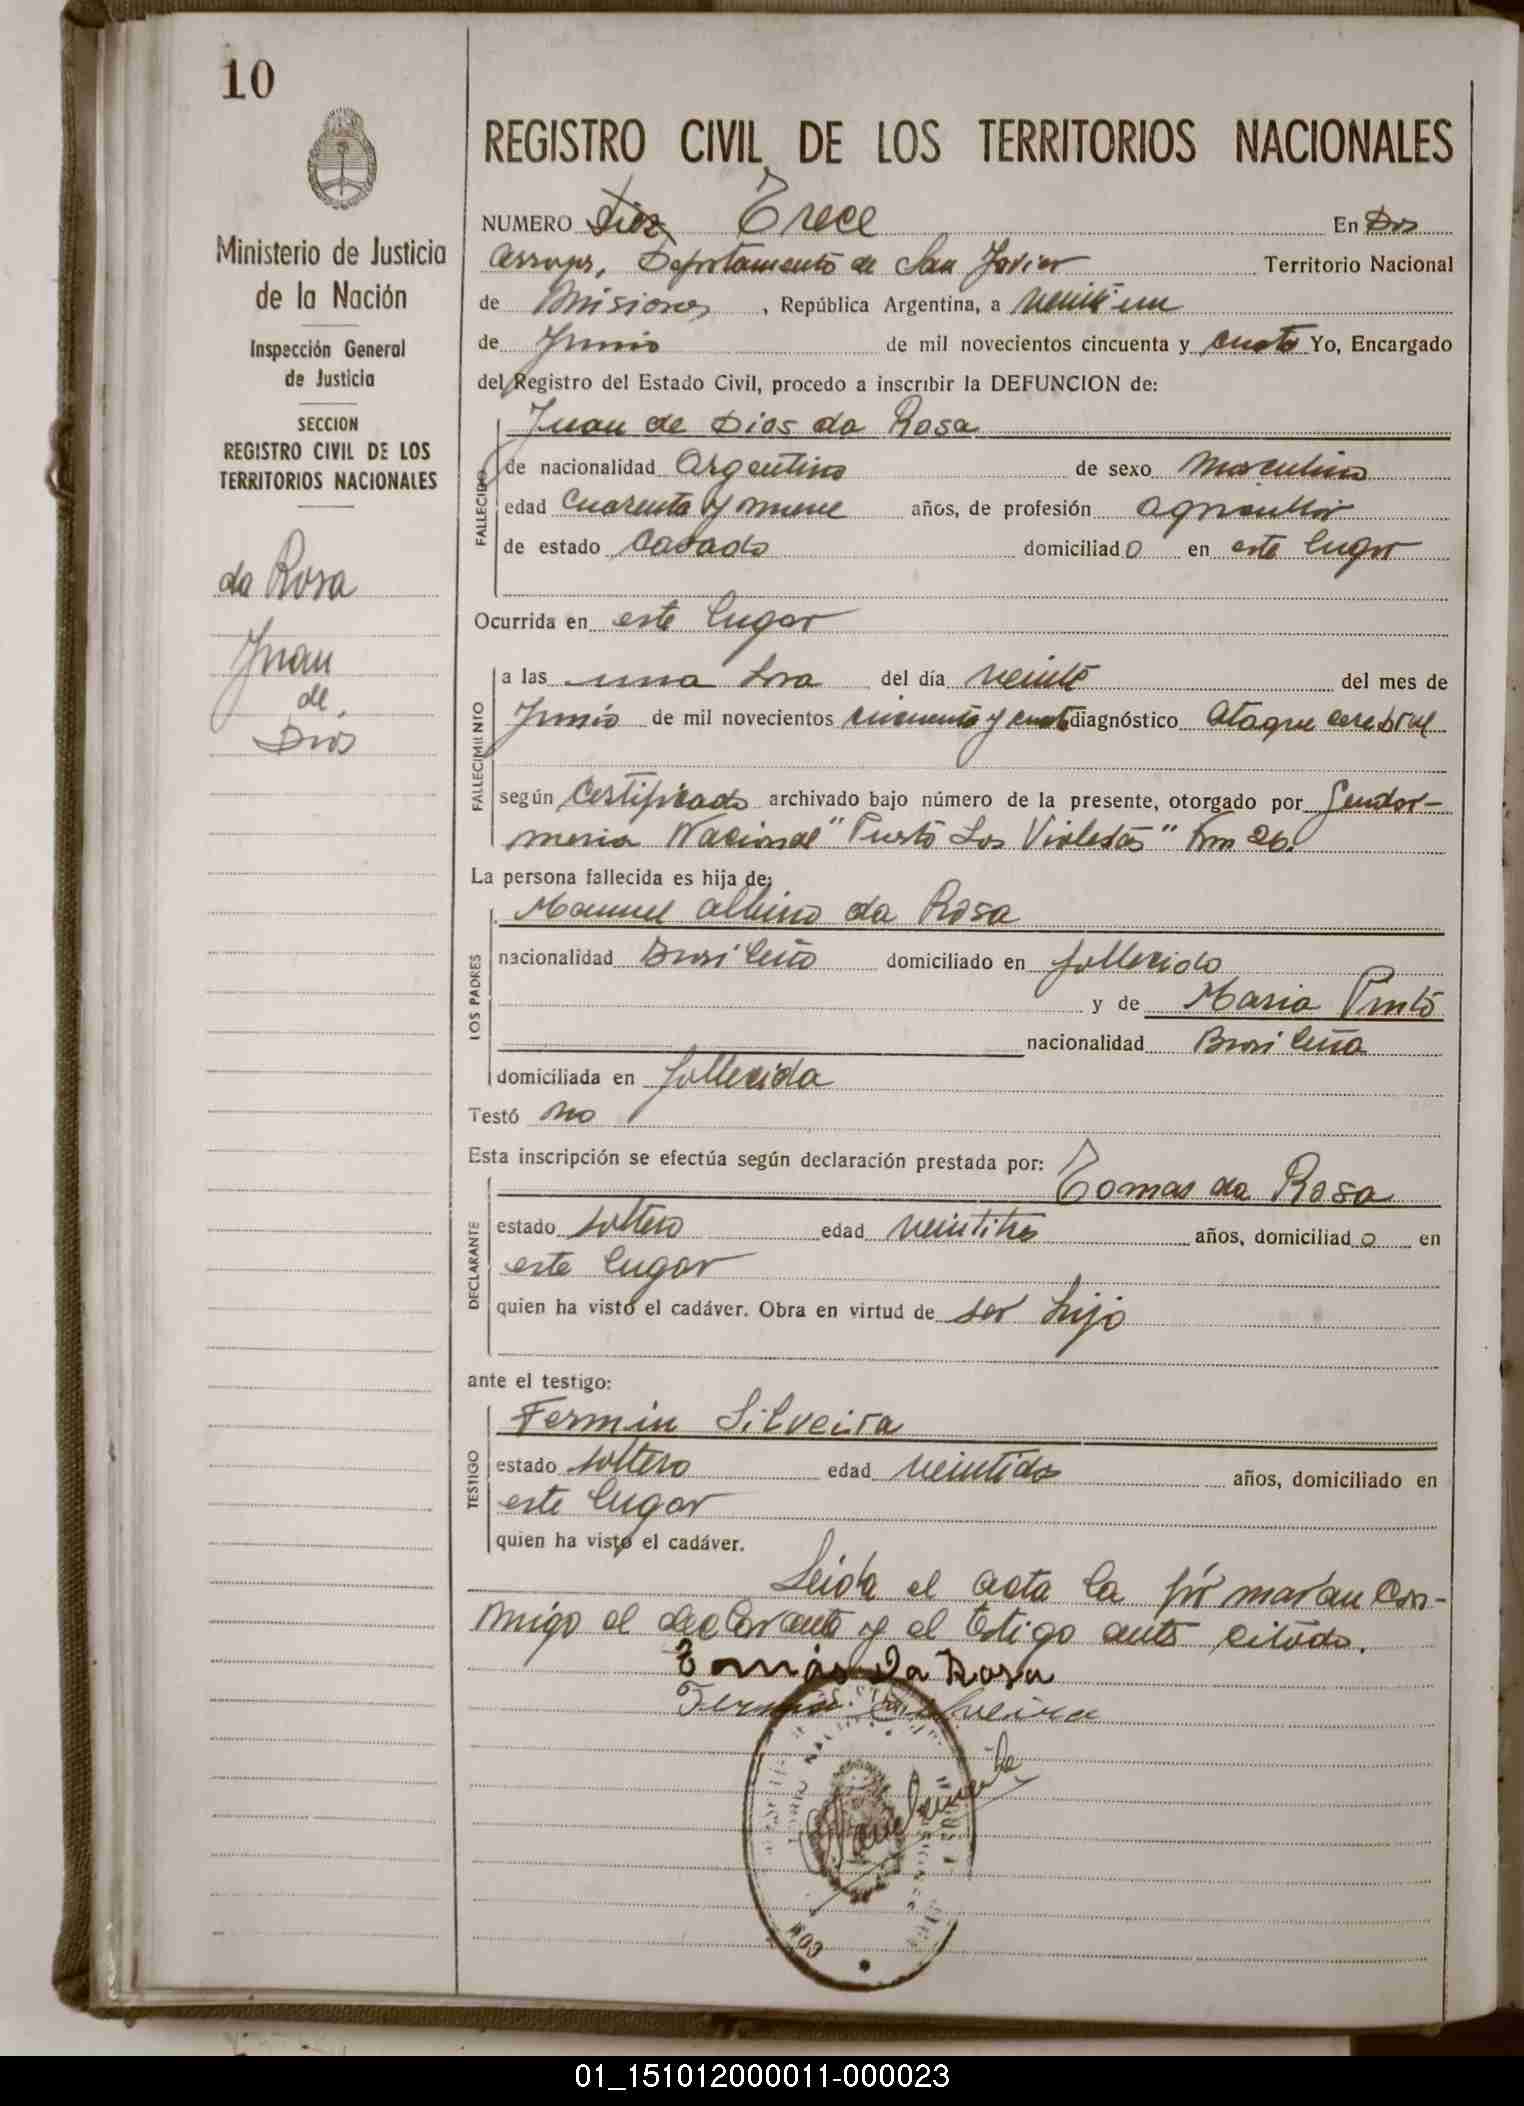 10
Ministerio de Justicia
de la Nación
Inspección General
de Justicia
SECCION
REGISTRO CIVIL DE LOS
TERRITORIOS NACIONALES
da Rosa
Juan
de
Dios
REGISTRO CIVIL DE LOS TERRITORIOS NACIONALES
NUMERO Diez Trece En Dos
Arroyos, Departamento de San Javier Territorio Nacional
de Misiones, República Argentina, a veintiun
de Junio de mil novecientos cincuenta y cuatro Yo, Encargado
del Registro del Estado Civil, procedo a inscribir la DEFUNCION de:
FALLECIDO
Juan de Dios da Rosa
de nacionalidad Argentino de sexo Masculino
edad Cuarenta y nueve años, de profesión agricultor
de estado Casado domiciliado en este lugar
Ocurrida en este lugar
FALLECIMIENTO
a las una hora del día veinte del mes de
Junio de mil novecientos cincuenta y cuatro diagnóstico Ataque cerebral
según Certificado archivado bajo número de la presente, otorgado por Gendar-
meria Nacional "Puesto Las Violetas" Km 26.
La persona fallecida es hija de:
LOS PADRES
Manuel Albino da Rosa
nacionalidad Brasileño domiciliado en fallecido
y de Maria Pinto
nacionalidad Brasileña
domiciliada en fallecida
Testó no
Esta inscripción se efectúa según declaración prestada por:
DECLARANTE
Tomas da Rosa
estado soltero edad veintitres años, domiciliado en
este lugar
quien ha visto el cadáver. Obra en virtud de ser hijo
ante el testigo:
TESTIGO
Fermin Silveira
estado soltero edad veintidos años, domiciliado en
este lugar
quien ha visto el cadáver.
Leida el acta la firmaran con-
migo el declarante y el testigo ante citado.
Tomás da Rosa
Fermin Silveira
01_151012000011-000023